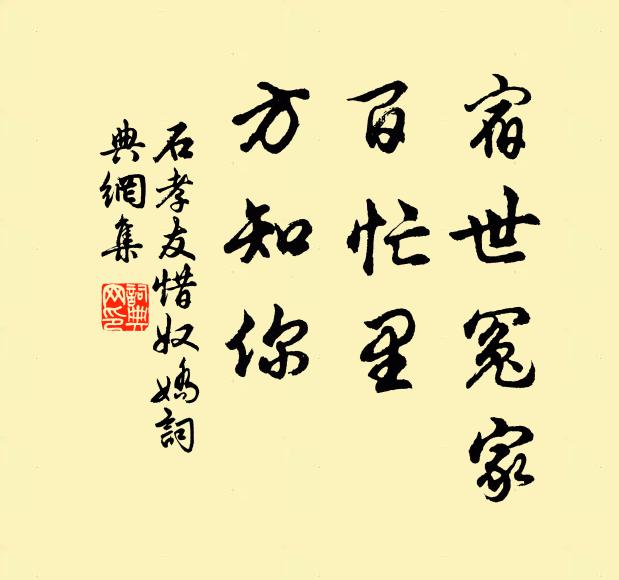 宿世冤家
百忙里
方知你
石孝友惜奴嬌詞
典網集
詞典網印